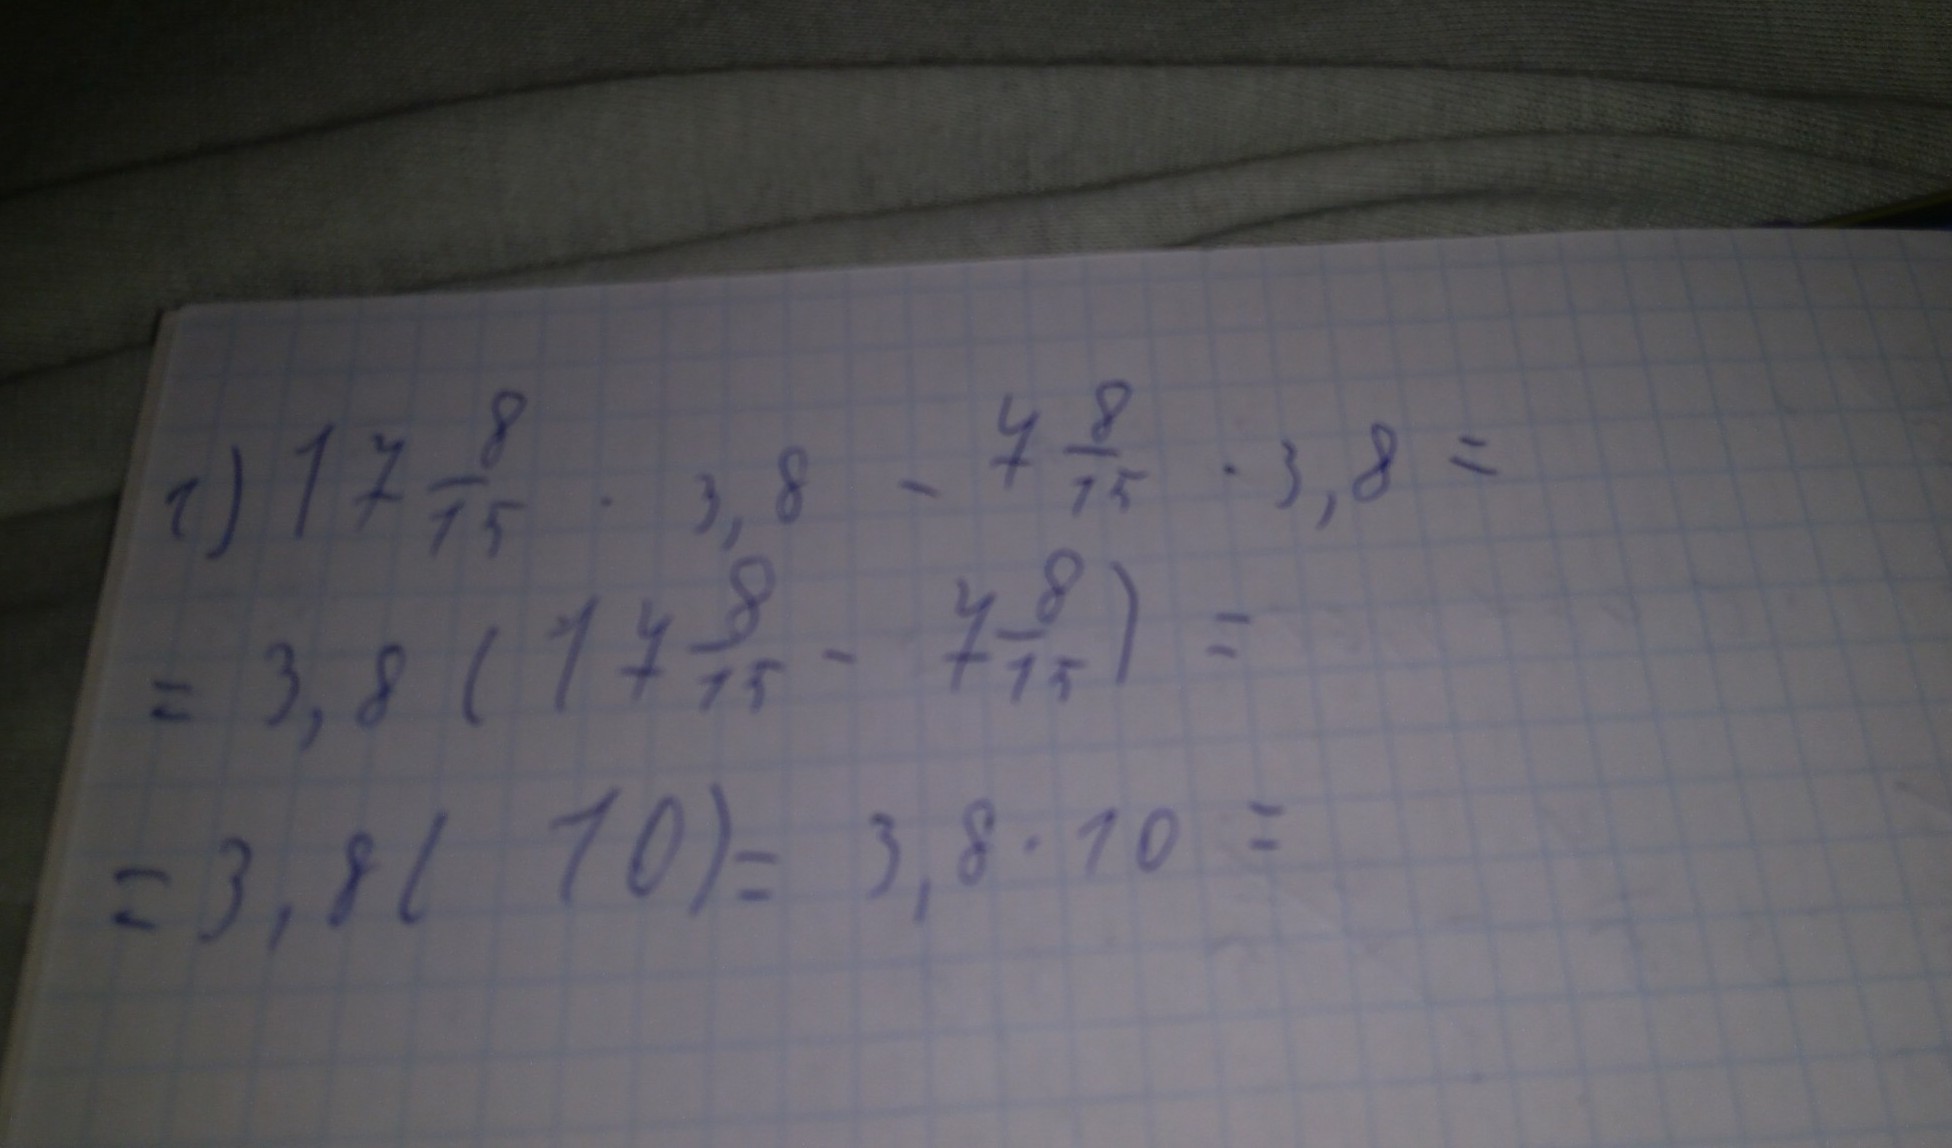 г) 17 8/15 · 3,8 - 7 8/15 · 3,8 =
= 3,8 ( 17 8/15 - 7 8/15 ) =
= 3,8 ( 10 ) = 3,8 · 10 =